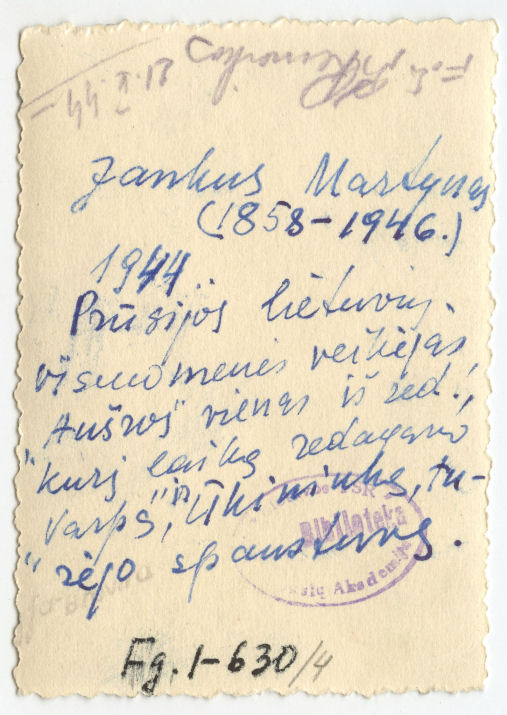 Jankus Martynas
(1858-1946.)
1944.
Prūsijos lietuvių
visuomenės veikėjas,
Aušros" vienas iš red.,
"kurį laiką redagavo
Varpą", "Ūkininką, tu-
"rėjo spaustuvę.
SSR
Biblioteka
Akademi
Fg. 1-630/4